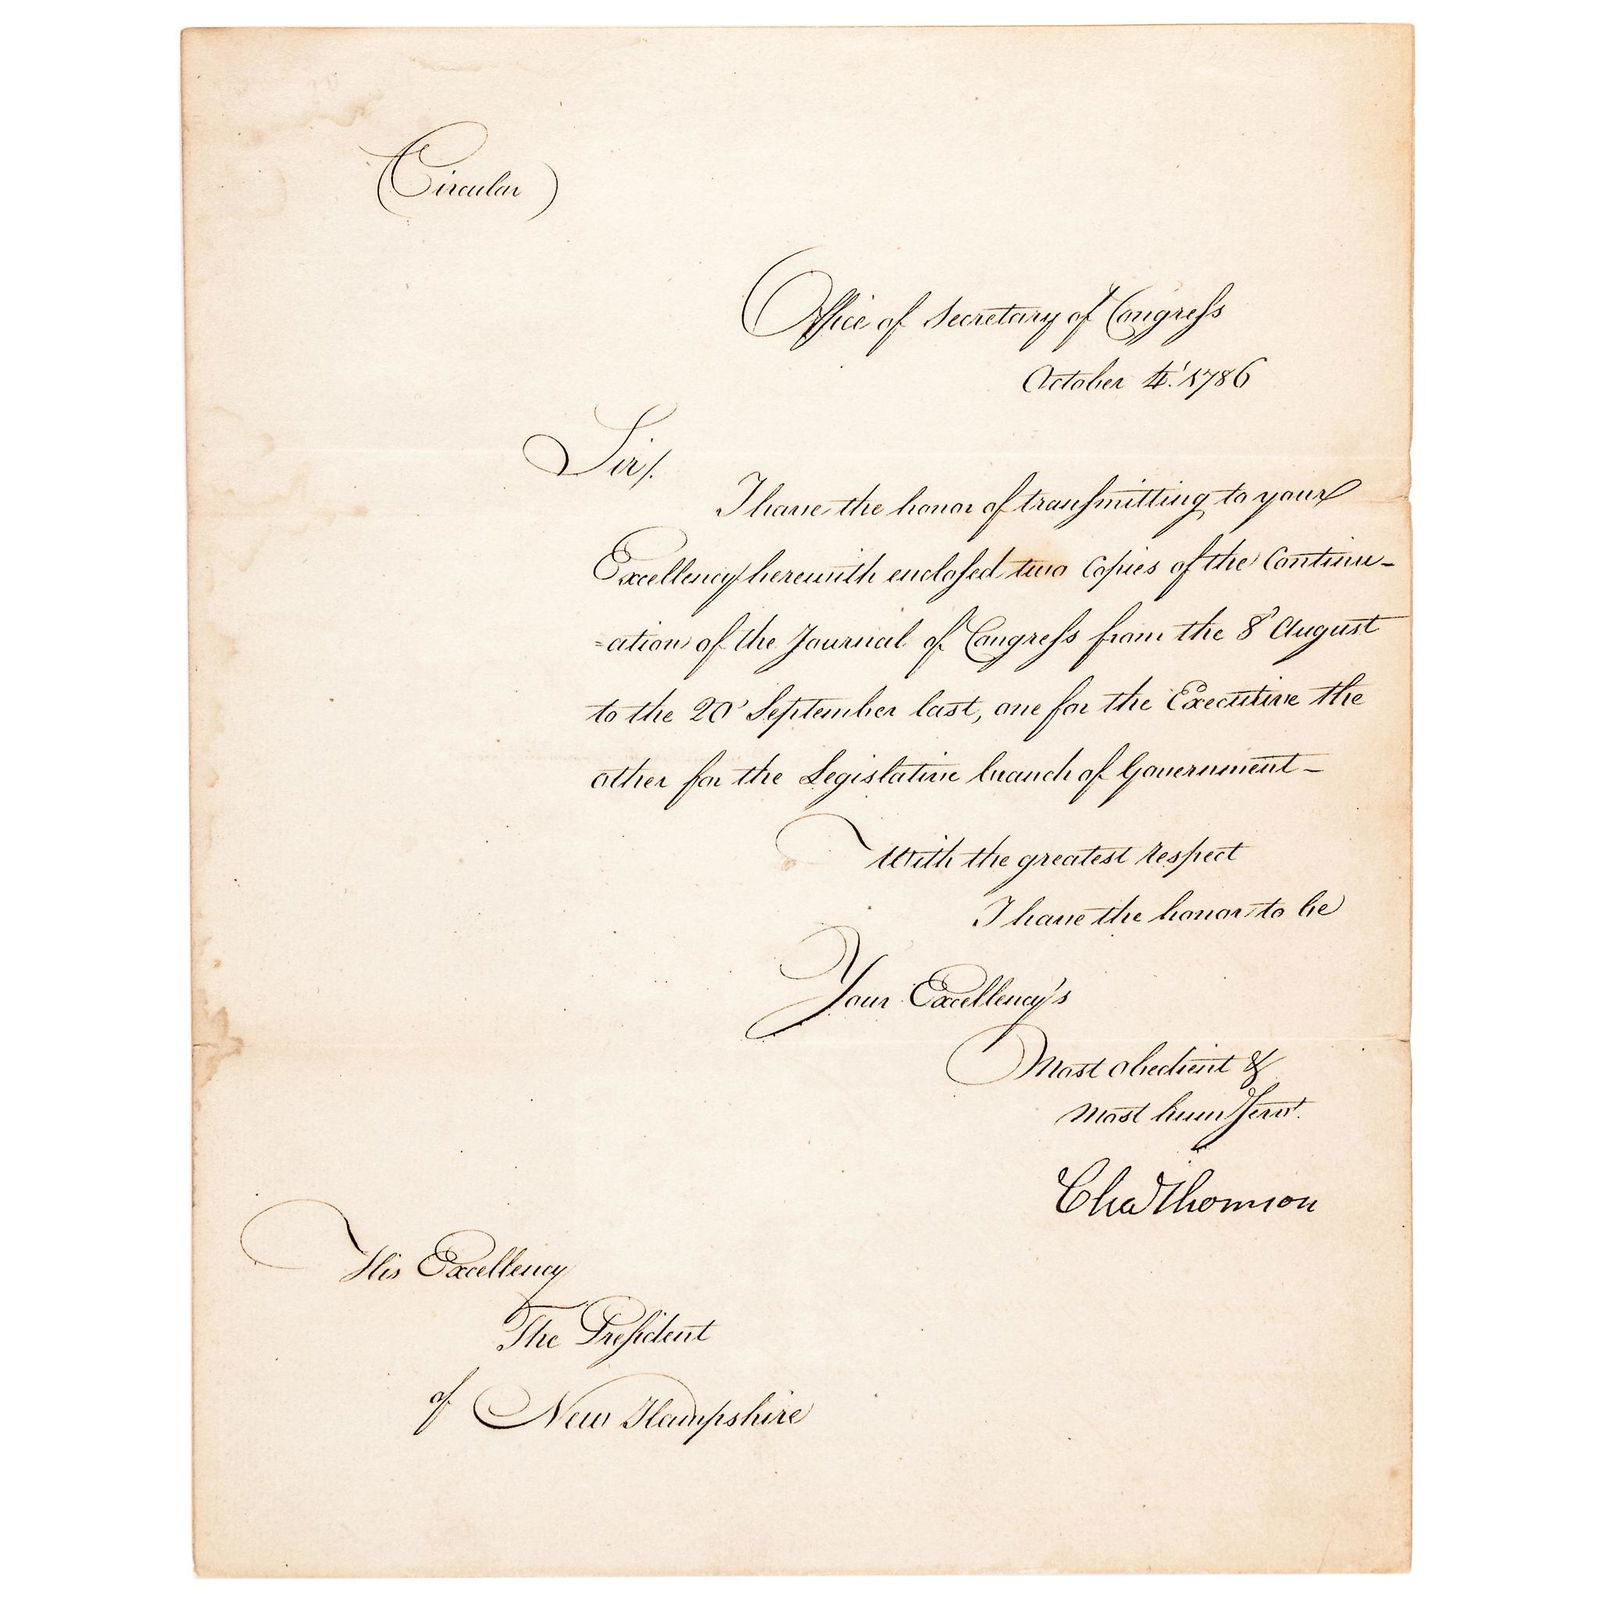 (Circular)
Office of Secretary of Congress
October 4. 1786
Sir/.
I have the honor of transmitting to your
Excellency herewith enclosed two Copies of the Continu-
-ation of the Journal of Congress from the 8 August
to the 20 September last, one for the Executive the
other for the Legislative branch of Government-
With the greatest respect
I have the honor to be
Your Excellency's
Most obedient &
most hum Servt.
Cha Thomson
His Excellency
The President
of New Hampshire